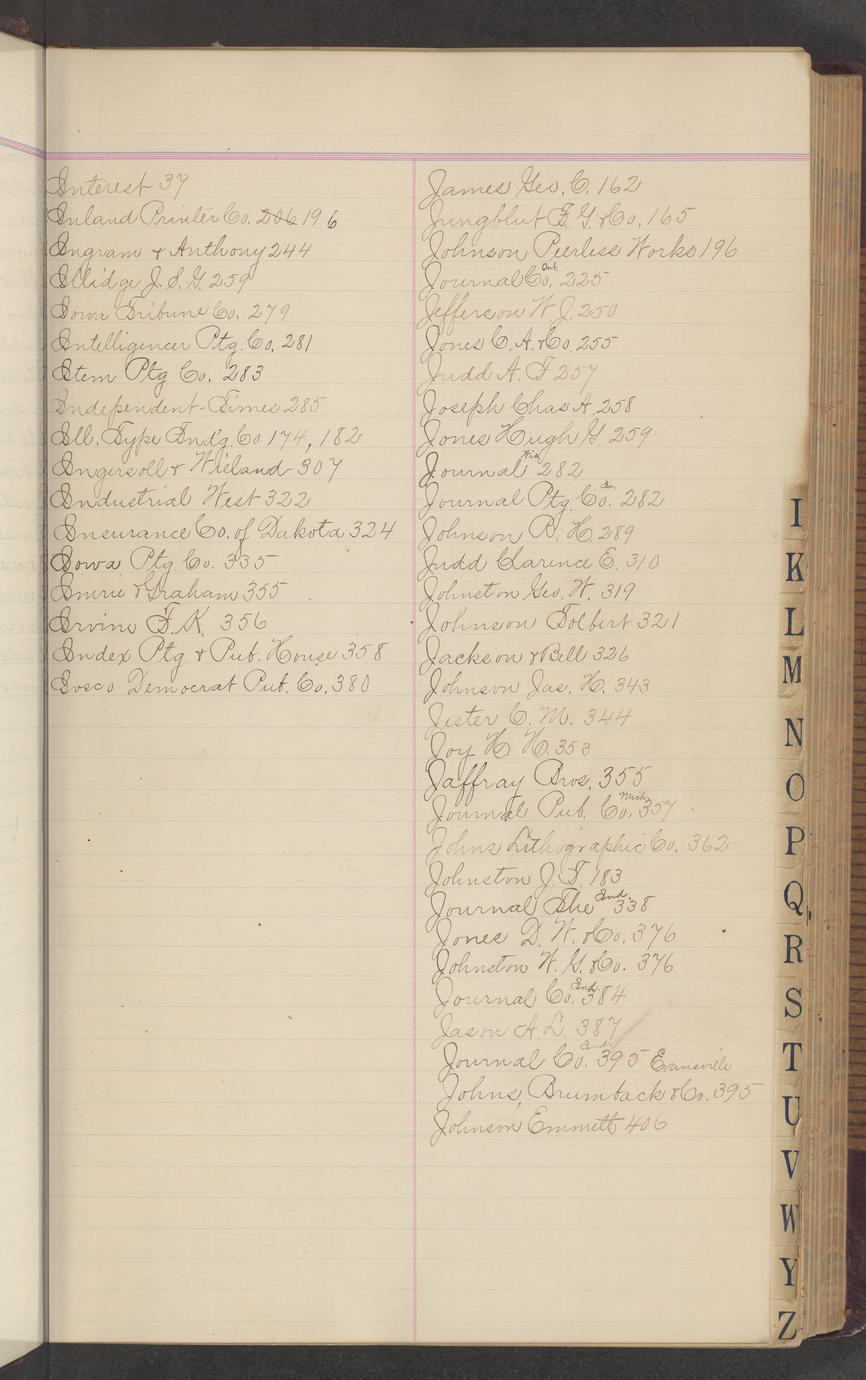 Interest 37
Inland Printer Co. 206 196
Ingram & Anthony 244
Illidge J. S. G. 259
Iowa Tribune Co. 279
Intelligencer Ptg. Co. 281
Item Ptg Co. 283
Independent-Times 285
Ill. Type Fndg. Co 174, 182
Ingersoll & Wieland 307
Industrial West 322
Insurance Co. of Dakota 324
Iowa Ptg. Co. 335
Imrie & Graham 355
Irvine F. K. 356
Index Ptg & Pub. House 358
Iosco Democrat Pub. Co. 380
James Geo. C. 162
Jungblut F. G. & Co. 165
Johnson Peerless Works 196
Journal Co. Ont. 225
Jefferson W. J. 250
Jones C. A. & Co. 255
Judd A. F 257
Joseph Chas A. 258
Jones Hugh G. 259
Journal 282
Journal Ptg. Co. 282
Johnson R. H. 289
Judd Clarence E. 310
Johnston Geo. W. 319
Johnson Tolbert 321
Jackson & Bell 326
Johnson Jas. H. 343
Jister C. M. 344
Joy H. H. 353
Jaffray Bros. 355
Journal Pub. Co. Mich. 357
Johns Lithographic Co. 362
Johnston J. F. 183
Journal The Ind. 338
Jones D. W. & Co. 376
Johnston W. G. & Co. 376
Journal Co. Ind. 384
Jason A. L. 387
Journal Co. Ind. 395 Evansville
Johns, Brumback & Co. 395
Johnson Emmett 406
I
K
L
M
N
O
P
Q
R
S
T
U
V
W
Y
Z